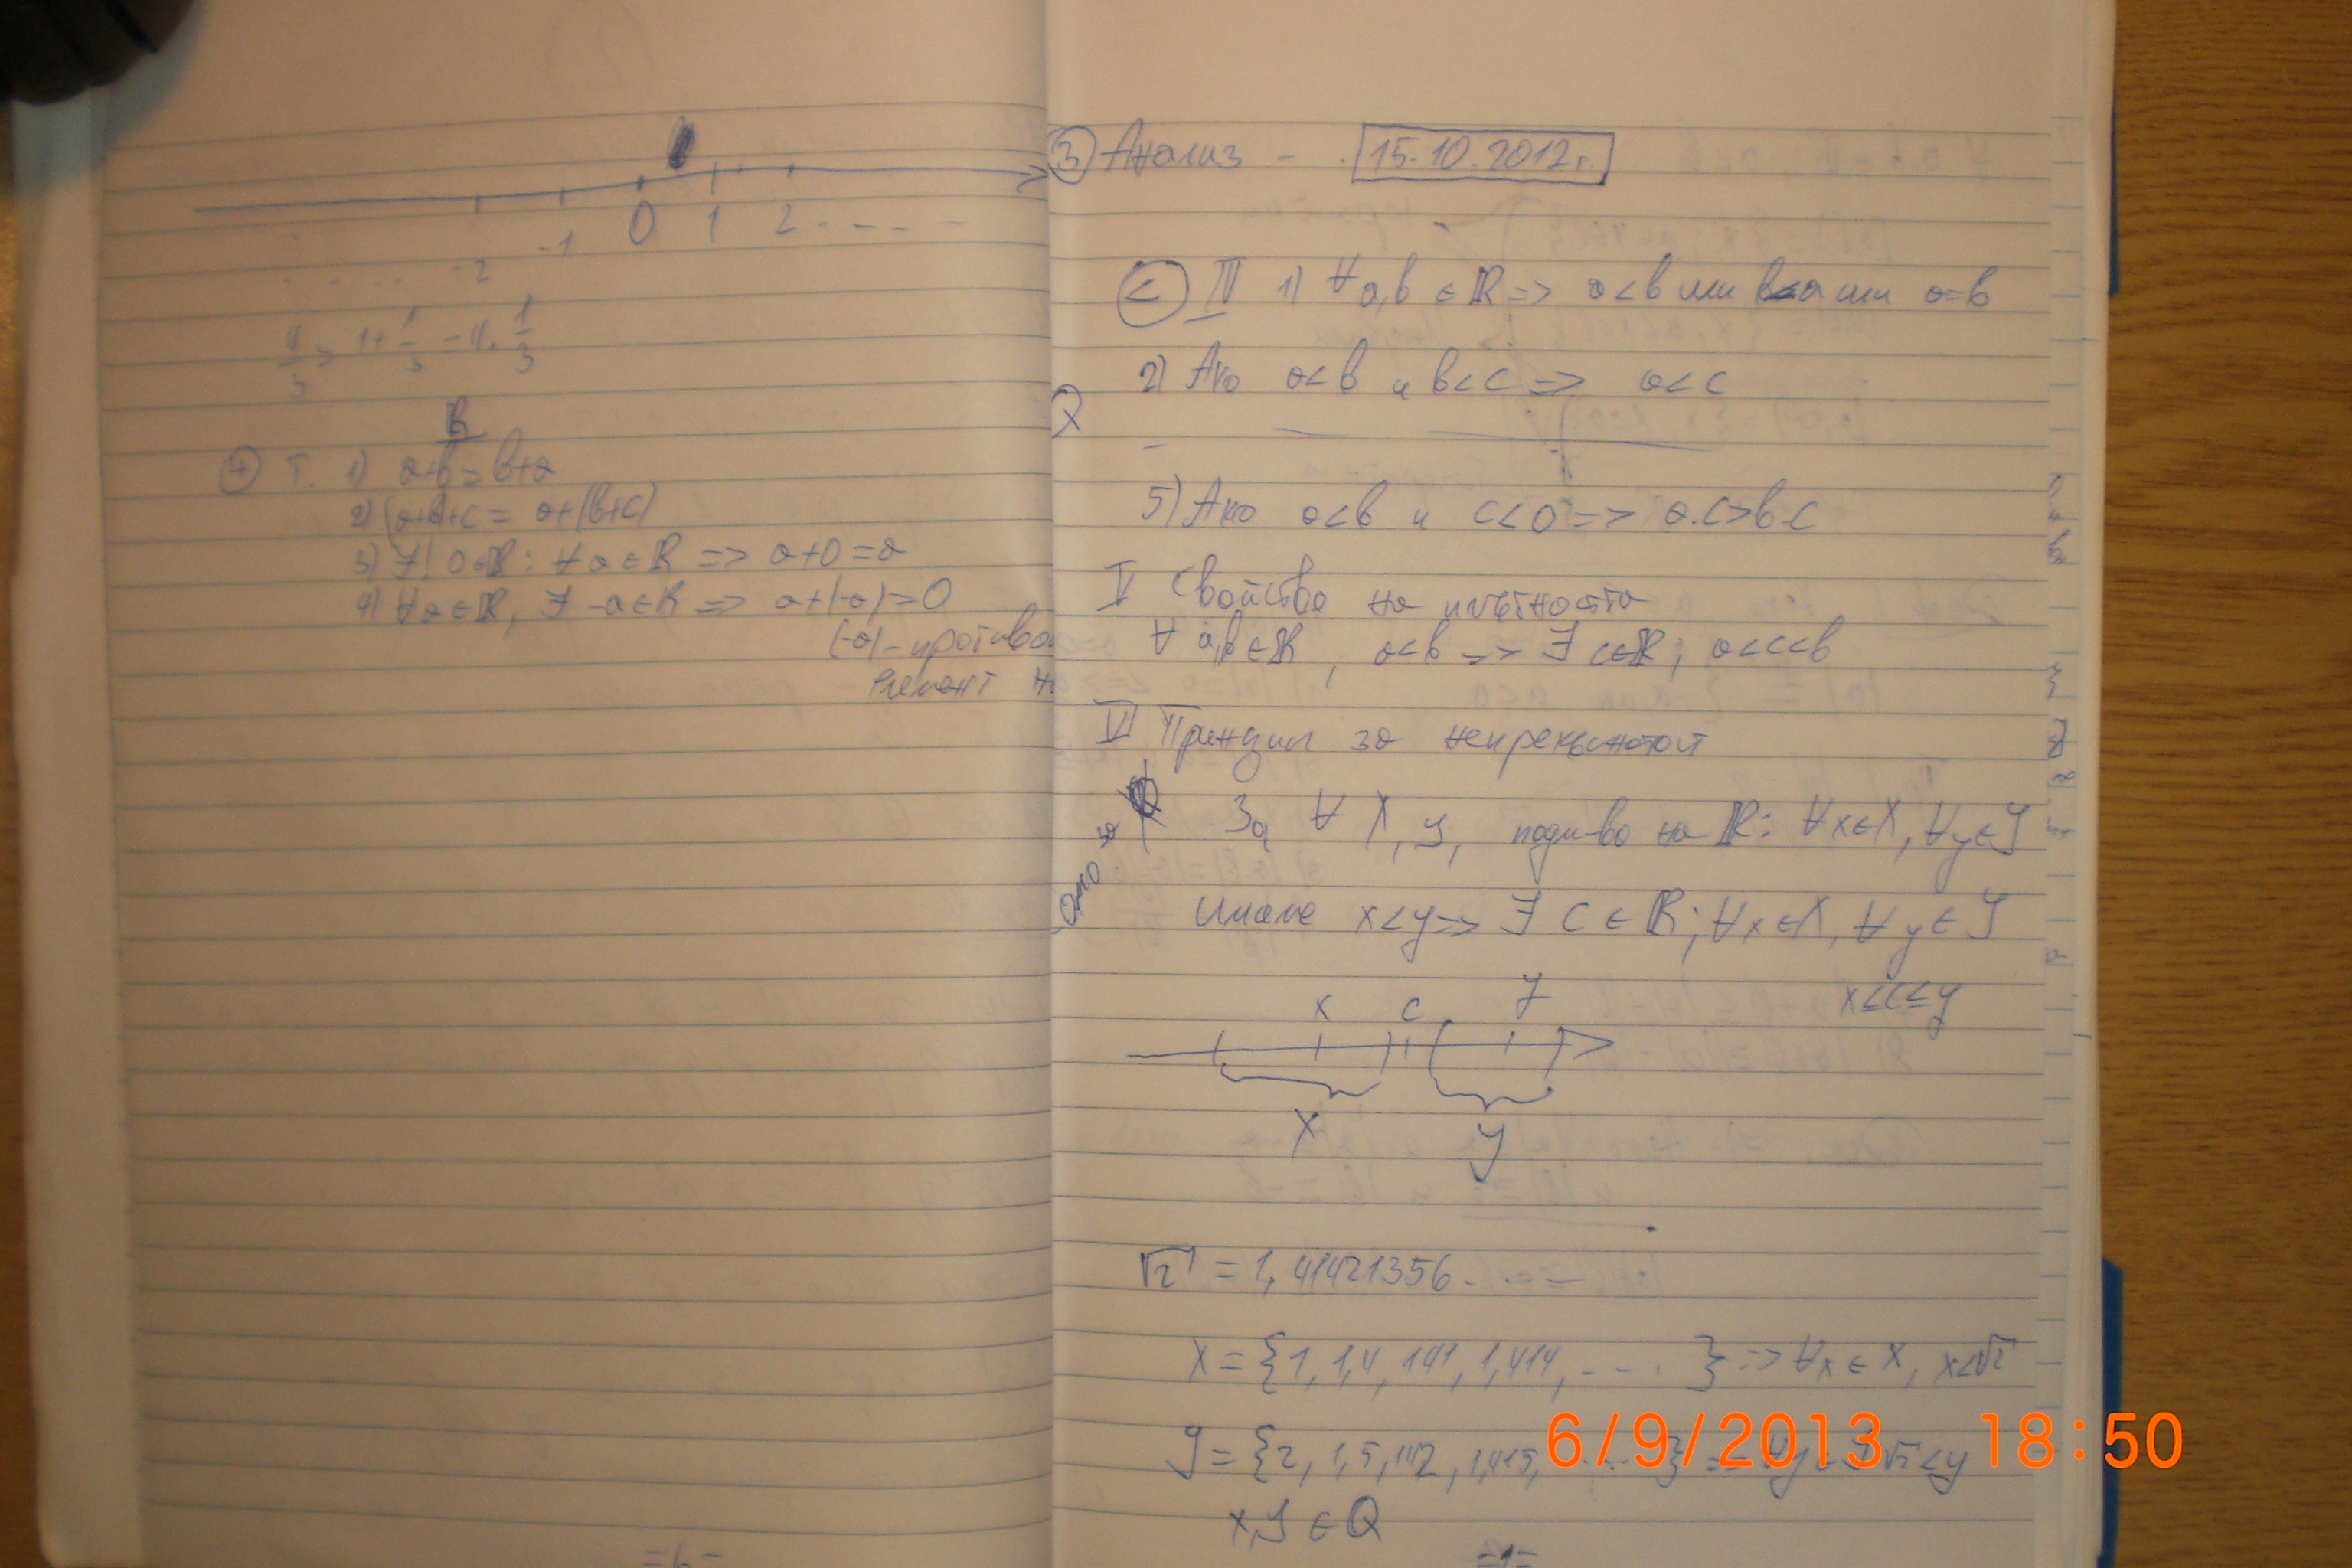 0 1 2 . - - -
-1
. . . . . -2
4/3 = 1+1/3 = 4.1/3
R
(+) I. 1) a+b=b+a
2) (a+b)+c = a+(b+c)
3) ∃! 0∈R: ∀a∈R => a+0=a
4) ∀a∈R, ∃ -a∈R => a+(-a)=0
(-a) - противо
елемент на
③ Анализ - 15.10.2012г.
(<) IV 1) ∀a,b ∈ R => a<b или b<a или a=b
2) Ако a<b и b<c => a<c
5) Ако a<b и c<0 => a.c>b.c
V Свойство на плътността
∀ a,b∈R, a<b => ∃ c∈R; a<c<b
VI Принцип за непрекъснатост
Ако за
За ∀ X, Y, подм-во на R: ∀x∈X, ∀y∈Y
имаме x<y => ∃ C ∈ R; ∀x∈X, ∀y∈Y
x≤c≤y
x c y
X Y
√2 = 1,41421356..
X = {1, 1,4, 1,41, 1,414, . - - . } => ∀x ∈ X, x<√2
Y = {2, 1,5, 1,42, 1,415, . . . } => ∀y ∈ Y √2<y
6/9/2013 18:50
X,Y ∈ Q
=1=